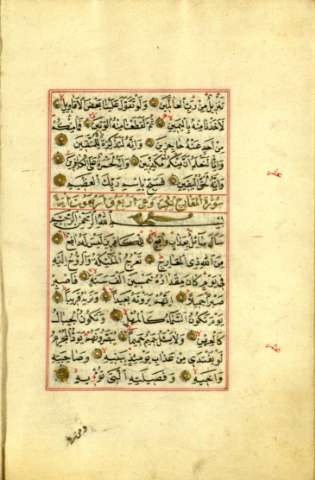 تنزيل من رب العالمين ولو تقول علينا بعض الاقاويل
لاخذنا منه باليمين ثم لقطعنا منه الوتين فما منكم
من احد عنه حاجزين وانه لتذكرة للمتقين
وانا لنعلم ان منكم مكذبين وانه لحسرة على الكافرين
وانه لحق اليقين فسبح باسم ربك العظيم
سورة المعارج
بسم الله الرحمن الرحيم
سأل سائل بعذاب واقع للكافرين ليس له دافع
من الله ذي المعارج تعرج الملئكة والروح اليه
في يوم كان مقداره خمسين الف سنة فاصبر
صبرا جميلا انهم يرونه بعيدا ونريه قريبا
يوم تكون السماء كالمهل وتكون الجبال
كالعهن ولا يسئل حميم حميما يبصرونهم يود المجرم
لو يفتدي من عذاب يومئذ ببنيه وصاحبته
واخيه وفصيلته التي تؤيه